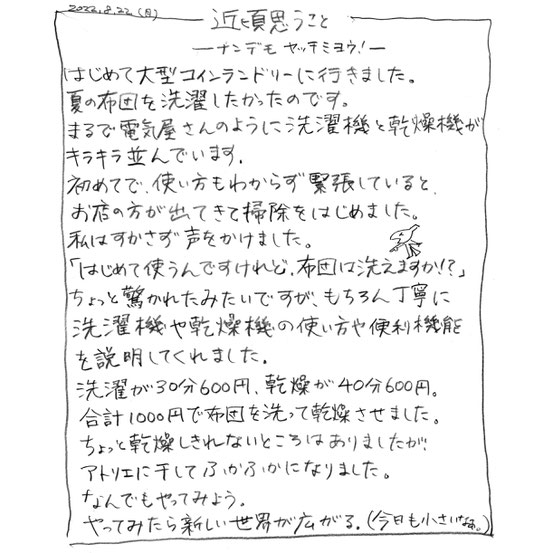 2022.8.22(月)
近頃思うこと
—ナンデモ ヤッテミヨウ!—
はじめて大型コインランドリーに行きました。
夏の布団を洗濯したかったのです。
まるで電気屋さんのように洗濯機と乾燥機が
キラキラ並んでいます。
初めてで、使い方もわからず緊張していると、
お店の方が出てきて掃除をはじめました。
私はすかさず声をかけました。
「はじめて使うんですけれど、布団は洗えますか!?」
ちょっと驚かれたみたいですが、もちろん丁寧に
洗濯機や乾燥機の使い方や便利機能
を説明してくれました。
洗濯が30分600円、乾燥が40分600円。
合計1000円で布団を洗って乾燥させました。
ちょっと乾燥しきれないところはありましたが、
アトリエに干してふかふかになりました。
なんでもやってみよう。
やってみたら新しい世界が広がる。(今日も小さいなぁ。)